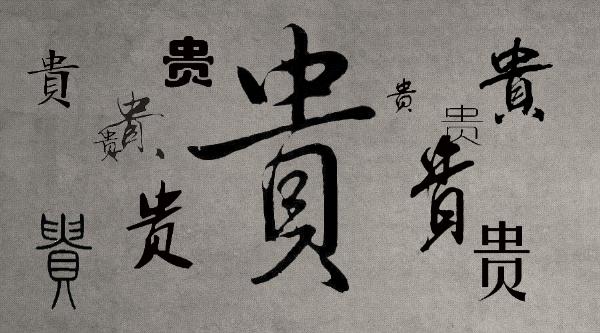 貴
贵
貴
貴
贵
貴
贵
貴
貴
贵
貴
贵